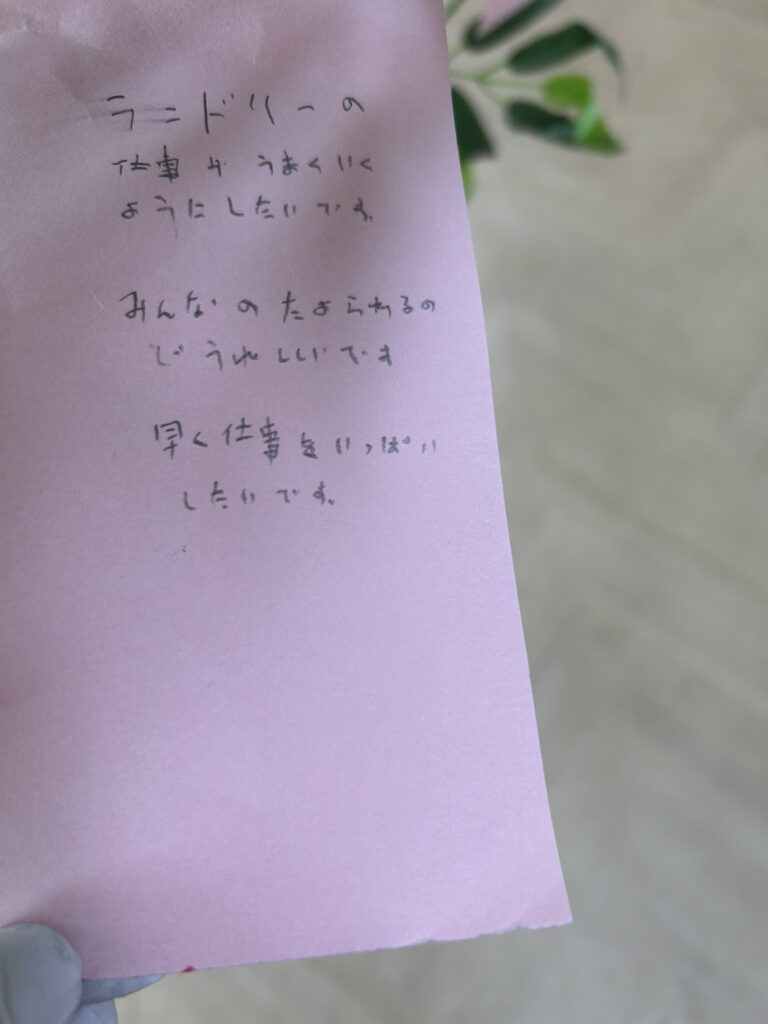 ランドリーの
仕事がうまくいく
ようにしたいです。
みんなのたよられるの
がうれしいです
早く仕事をいっぱい
したいです。